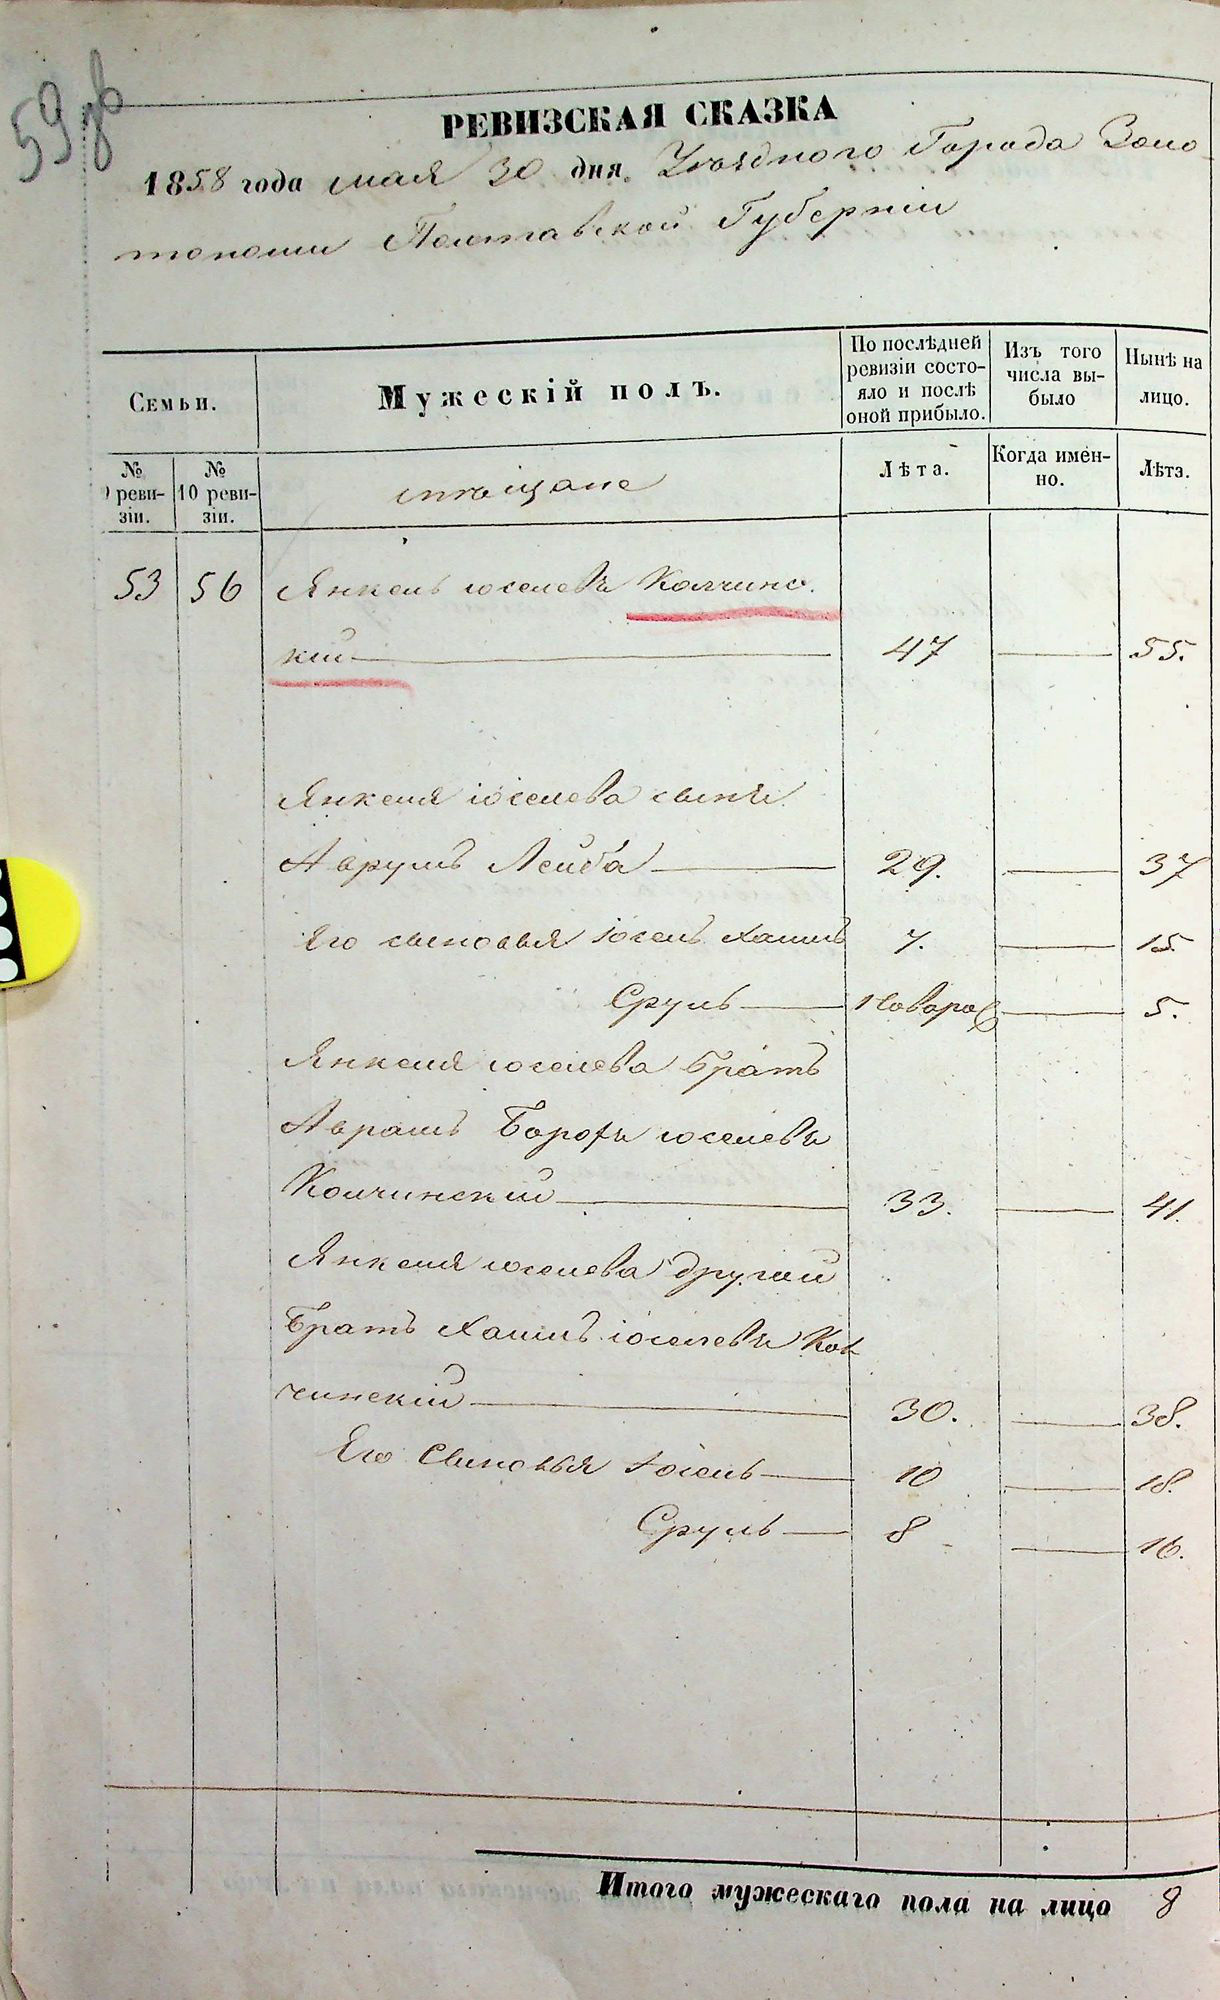 59 зв
РЕВИЗСКАЯ СКАЗКА
1858 года мая 30 дня Уѣзднаго Города Золо-
тоноши Полтавской Губерніи
Семьи.
Мужескій полъ.
По послѣдней ревизіи состо-
яло и послѣ оной прибыло.
Изъ того числа вы-
было
Нынѣ на лицо.
№ 9 реви-
зіи.
№ 10 реви-
зіи.
мѣщане
Лѣта.
Когда имен-
но.
Лѣта.
53 56 Янкель Іоселевъ Колчинс
кій 47 55.
Янкеля Іоселева сынъ
Аврумъ Лейба 29. 37
Его сыновья Іосель Хаимъ 7. 15
Сруль новорож 5.
Янкеля Іоселева братъ
Аврамъ Борохъ Іоселевъ
Колчинскій 33. 41.
Янкеля Іоселева другой
Братъ Хаимъ Іоселевъ Кол
чинскій 30. 38.
Его Сыновья Іосель 10 18.
Сруль 8 16.
Итого мужескаго пола на лицо 8